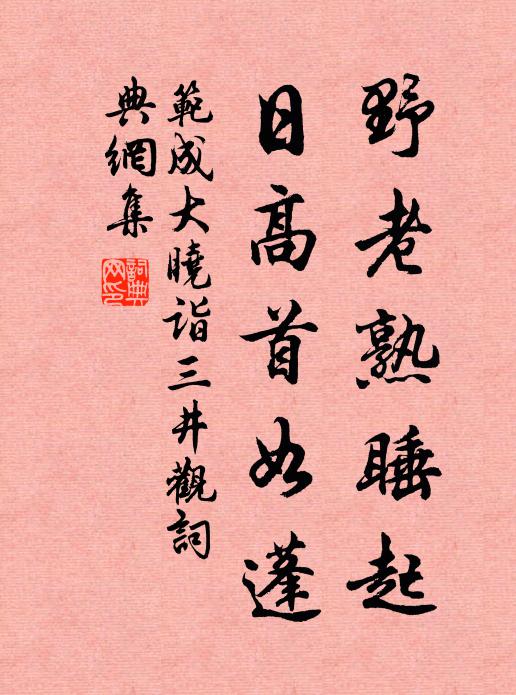 野老熟睡起
日高首如蓬
範成大曉詣三井觀詞
典網集
詞典
网印